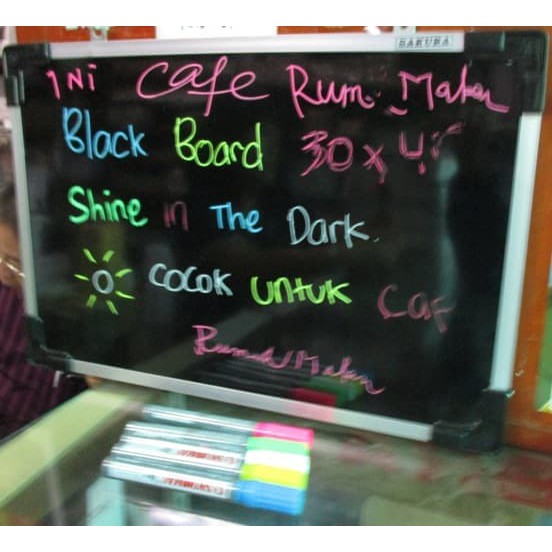 SAKURA
INi Cafe Rum. Makan
Black Board 30 x 45
Shine in The Dark.
COCOK UNTUK Caf
Rumah Makan